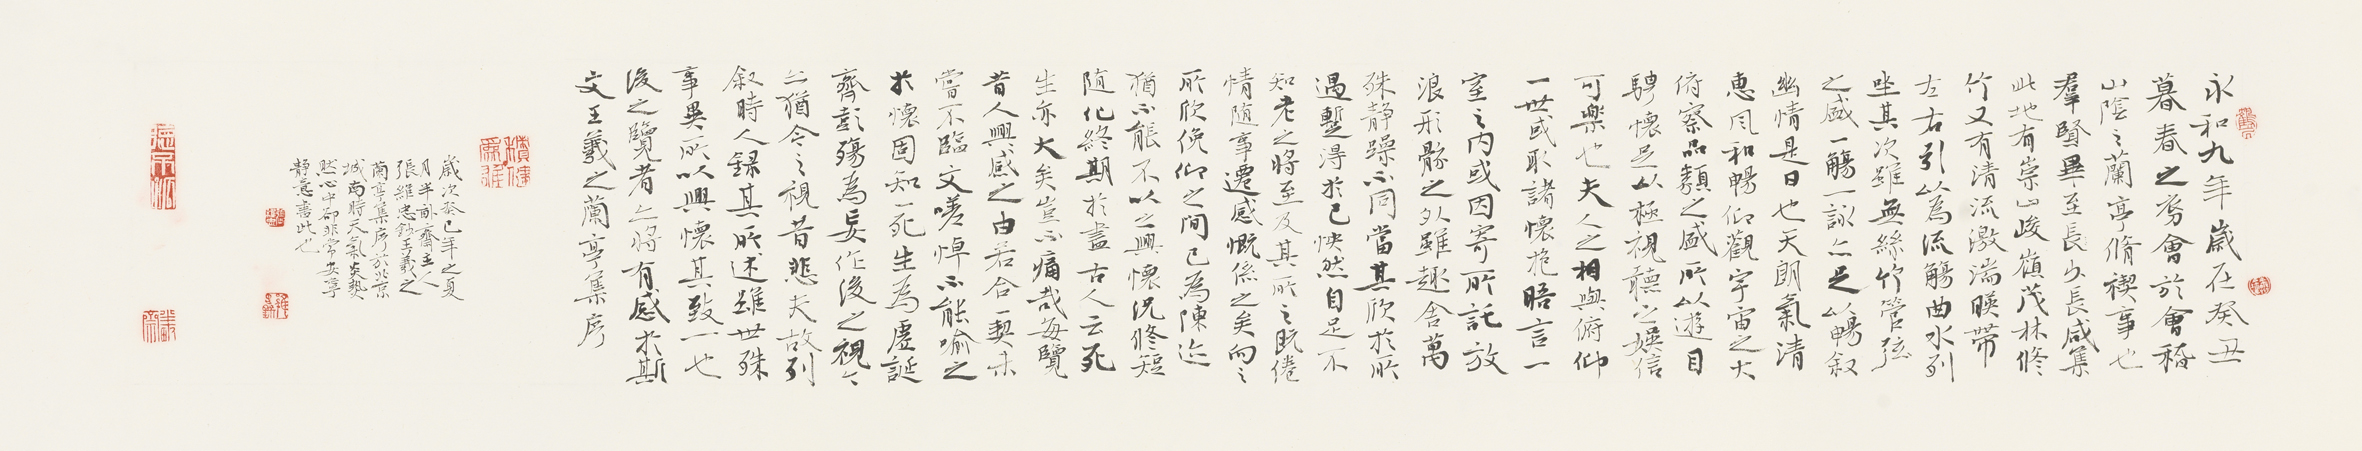 永和九年歲在癸丑
暮春之初會於會稽
山陰之蘭亭脩禊事也
羣賢畢至長少長咸集
此地有崇山峻嶺茂林修
竹又有清流激湍暎帶
左右引以為流觴曲水列
坐其次雖無絲竹管弦
之盛一觴一詠亦足以暢叙
幽情是日也天朗氣清
惠風和暢仰觀宇宙之大
俯察品類之盛所以遊目
騁懷足以極視聽之娛信
可樂也夫人之相與俯仰
一世或取諸懷抱晤言一
室之內或因寄所託放
浪形骸之外雖趣舍萬
殊靜躁不同當其欣於所
遇暫得於己怏然自足不
知老之將至及其所之既倦
情随事遷感慨係之矣向之
所欣俛仰之間已為陳迹
猶不能不以之興懷況修短
随化終期於盡古人云死
生亦大矣豈不痛哉每覽
昔人興感之由若合一契未
嘗不臨文嗟悼不能喻之
於懷固知一死生為虛誕
齊彭殤為妄作後之視今
亦猶今之視昔悲夫故列
叙時人錄其所述雖世殊
事異所以興懷其致一也
後之覽者亦將有感於斯
文王羲之蘭亭集序
歲次癸巳年之夏
月半商齋主人
張維忠鈔王羲之
蘭亭集序於北京
城南時天氣炎熱
然心中却非常安寧
靜意書此也